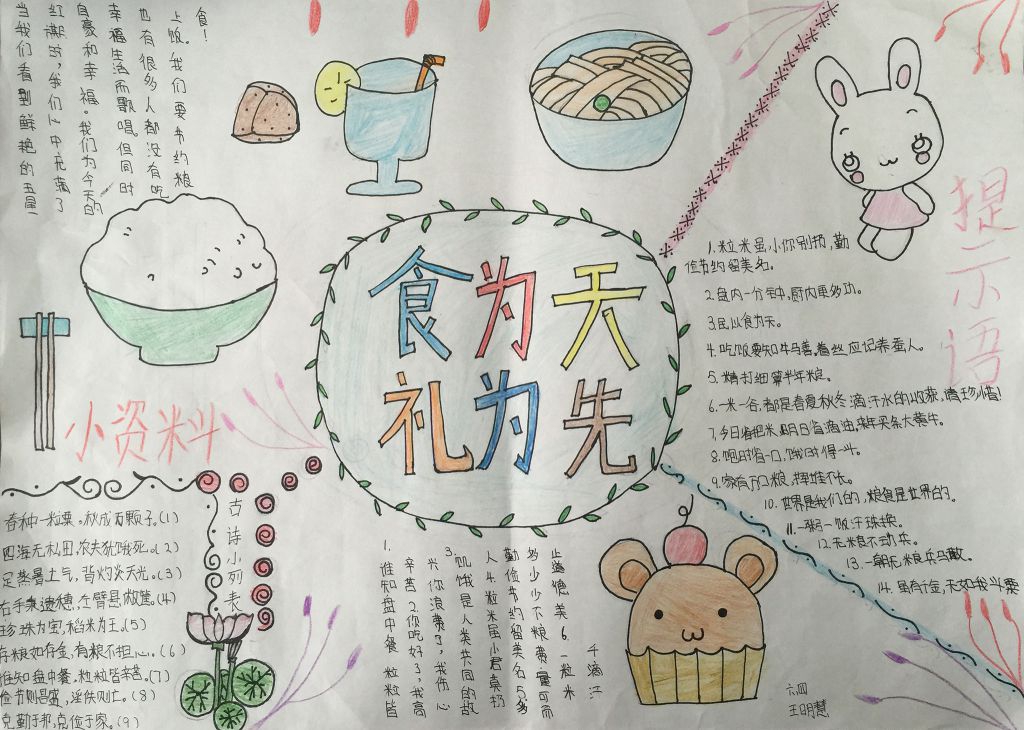 当我们看到鲜艳的五星
红旗时,我们心中充满了
自豪和幸福。我们为今天的
幸福生活而歌唱。但同时
也有很多人都没有吃
上饭。我们要节约粮
食!
食为天
礼为先
提示语
1.粒米虽小你别扔,勤
俭节约留美名。
2.盘内一分钟,厨内更多功。
3.民以食为天。
4.吃饭要知牛马善,着丝应记养蚕人。
5.精打细算半年粮。
6.一米一谷,都是春夏秋冬滴汗水的收获,请珍惜!
7.今日省把米,明日省滴油,来年买条大黄牛。
8.饱时省一口,饿时得一斗。
9.家有万口粮,挥娃不长。
10.世界是我们的,粮食是世界的。
11.一粥一饭汗珠换。
12.无粮食不动兵。
13.一朝无粮兵马散。
14.虽有千金,无如我斗粟
小资料
古诗小列表
春种一粒粟。秋成万颗子。(1)
四海无私田,农夫犹饿死。(2)
足蒸暑土气,背灼炎天光。(3)
右手秉遗穗,左臂悬敝筐。(4)
珍珠为宝,稻米为王。(5)
存粮如存金,有粮不担心。(6)
谁知盘中餐。粒粒皆辛苦。(7)
俭节则昌盛,淫佚则亡。(8)
克勤于邦,克俭于家。(9)
1.谁知盘中餐 粒粒皆
辛苦 2.你吃好了,我高
兴你浪费了,我伤心
3.饥饿是人类共同的敌
人 4.粒米虽小君莫扔
勤俭节约留美名 5.多
多少少不粮费,量可而
止道德美 6.一粒米
千滴汗
六四
王明慧